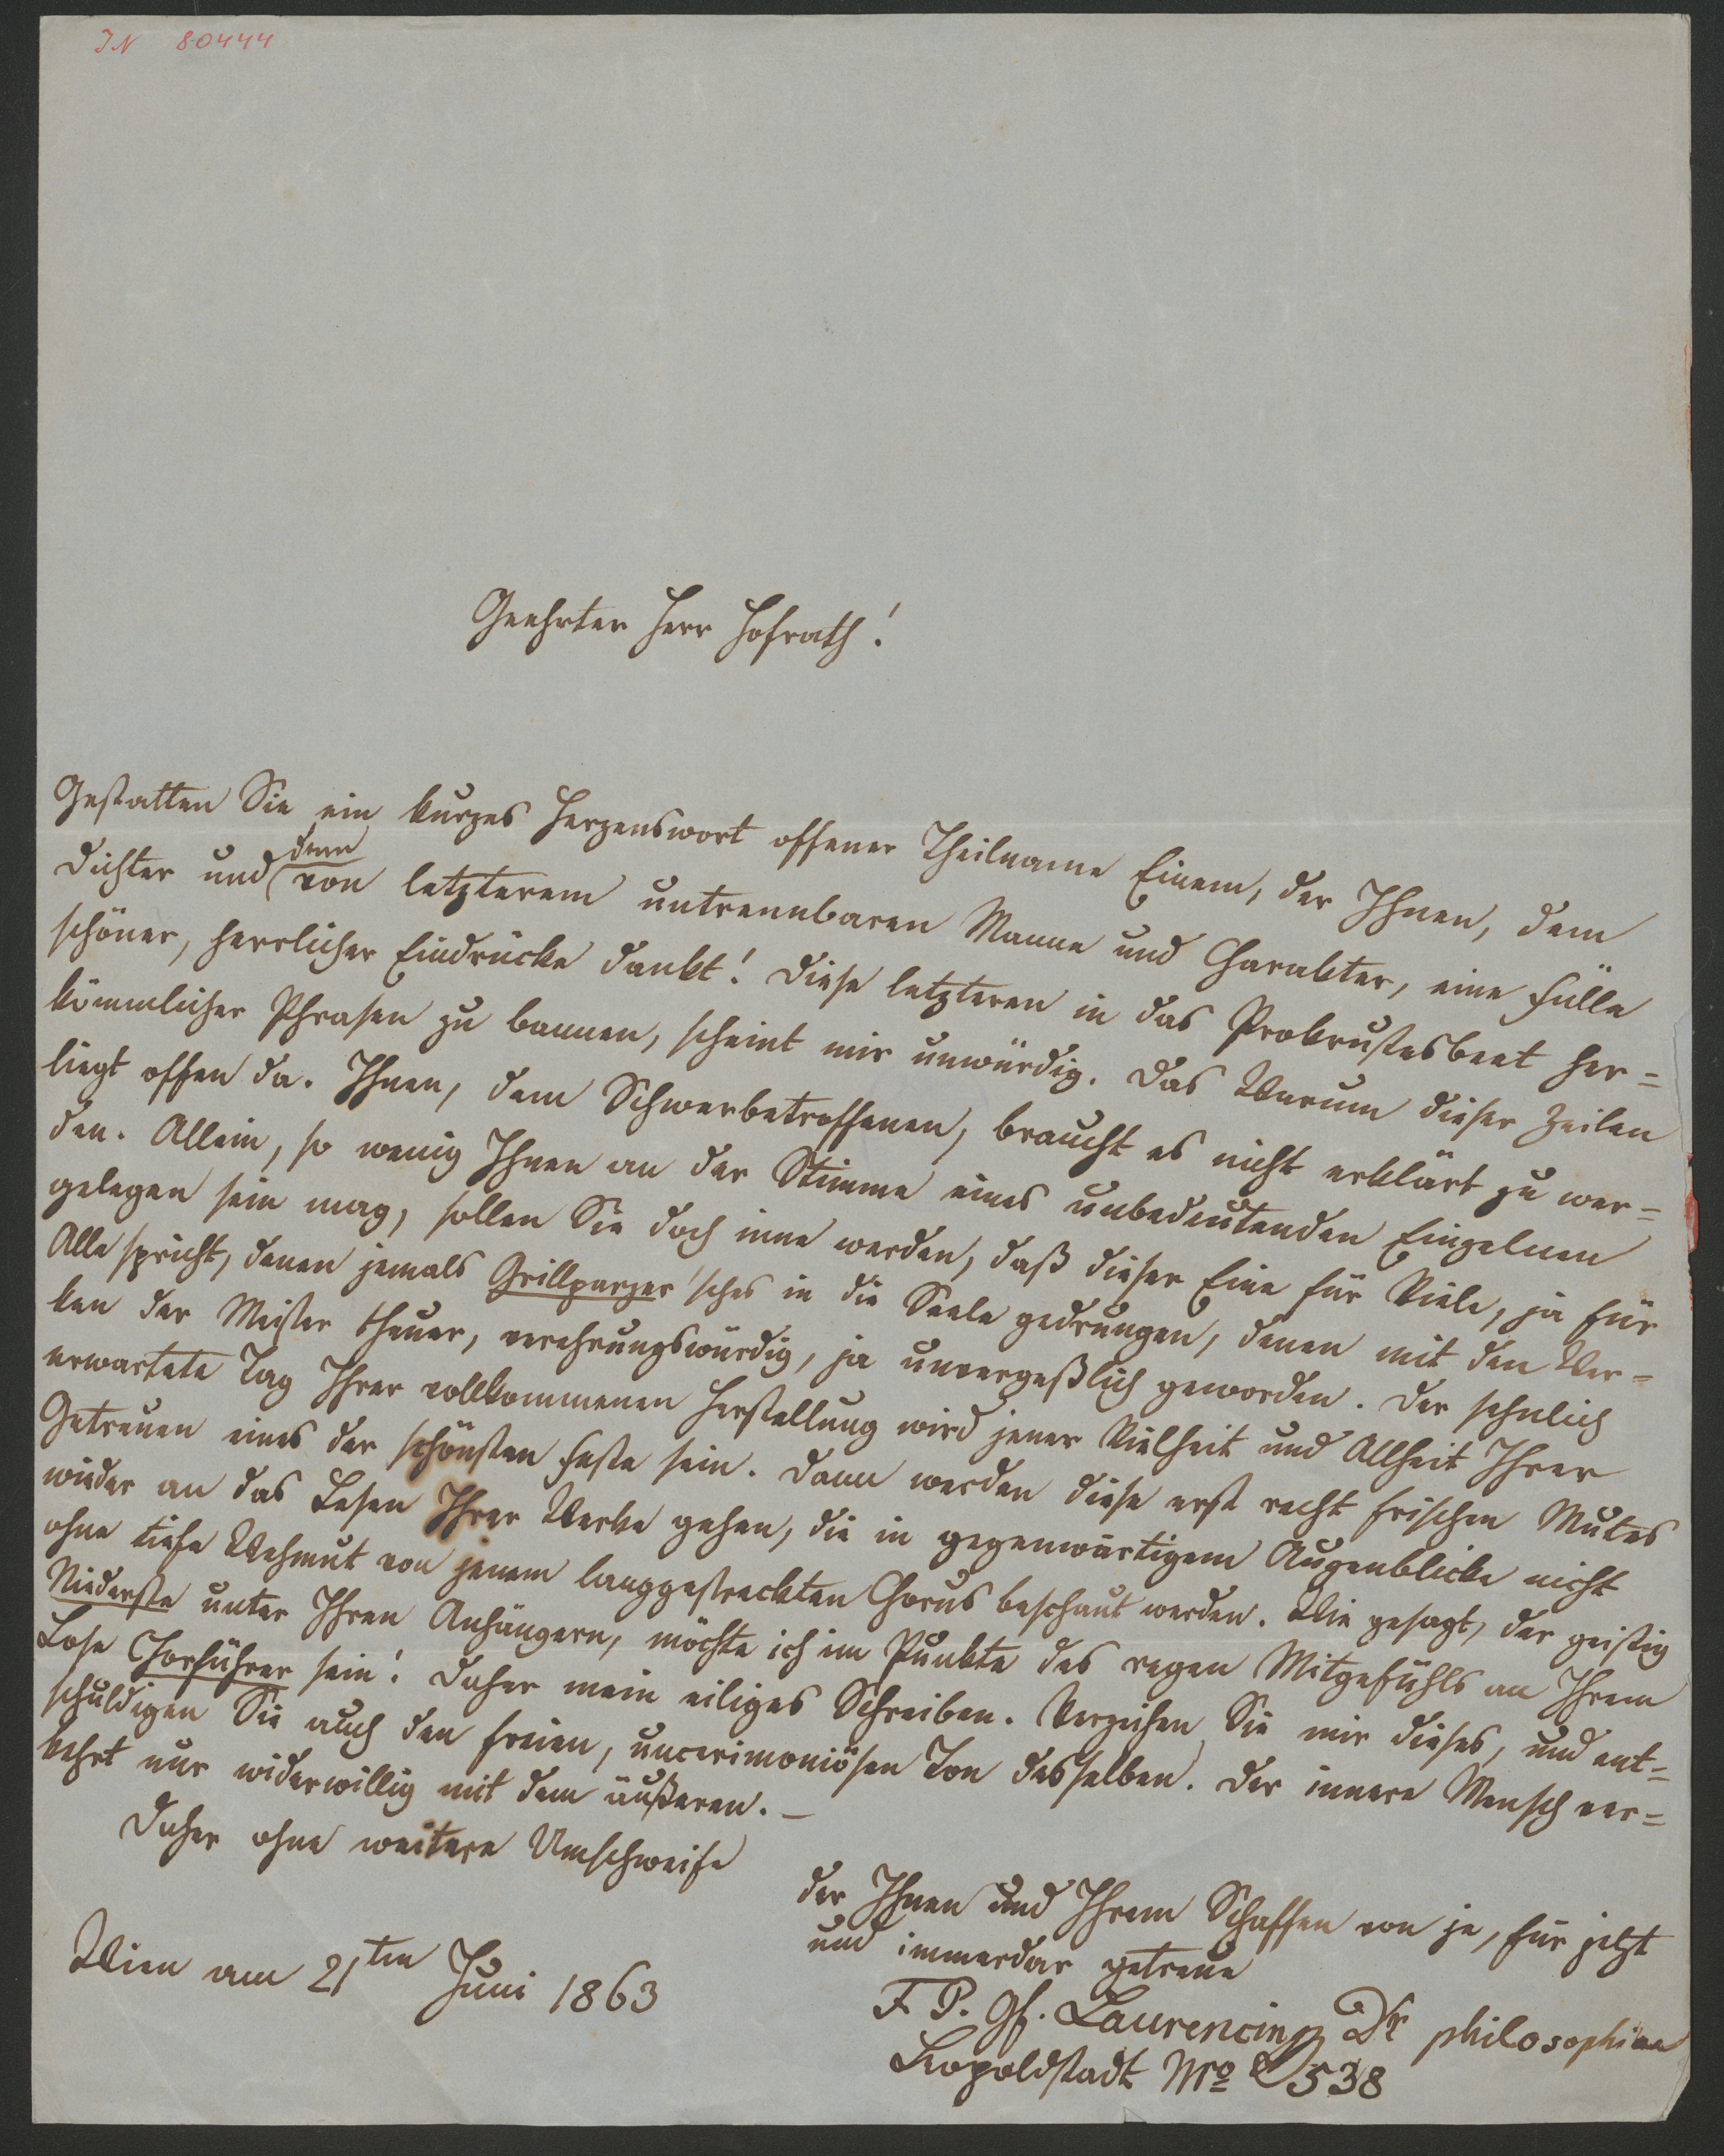 IN 80444
Geehrter Herr Hofrath!
Gestatten Sie ein kurzes Herzenswort offener Theilname Einem, der Ihnen, dem
Dichter und (dem) von letzterem untrennbaren Manne und Charakter, eine Fülle
schöner, herrlicher Eindrücke dankt! Diese letzteren in das Prokrustesbeet her=
kömmlicher Phrasen zu bannen, scheint mir unwürdig. Das Warum dieser Zeilen
liegt offen da. Ihnen, dem Schwerbetroffenen, braucht es nicht erklärt zu wer=
den. Allein, so wenig Ihnen an der Stimme eines unbedeutenden Einzelnen
gelegen sein mag, sollen Sie doch inne werden, daß dieser Eine für Viele, ja für
Alle spricht, denen jemals Grillparzer'sches in die Seele gedrungen, denen mit den Wer=
ken der Meister theuer, verehrungswürdig, ja unvergeßlich geworden. Der sehnlich
erwartete Tag Ihrer vollkommenen Herstellung wird jener Vielheit und Allheit Ihrer
Getreuen eines der schönsten Feste sein. Dann werden diese erst recht frischen Mutes
wieder an das Lesen Ihrer Werke gehen, die in gegenwärtigem Augenblicke nicht
ohne tiefe Wehmut von jenem langgestreckten Chorus beschaut werden. Wie gesagt, der geistig
Niederste unter Ihren Anhängern, möchte ich im Punkte des regen Mitgefühls an Ihrem
Lose Chorführer sein! Daher mein eiliges Schreiben. Verzeihen Sie mir dieses, und ent=
schuldigen Sie auch den freien, uncerimoniösen Ton desselben. Der innere Mensch ver=
kehrt nur widerwillig mit dem äußeren. –
Daher ohne weitere Umschweife
der Ihnen und Ihrem Schaffen von je, für jetzt
und immerdar getreue
F. P. Gf. Laurencin Dr philosophiae
Leopoldstadt No 538
Wien am 21ten Juni 1863